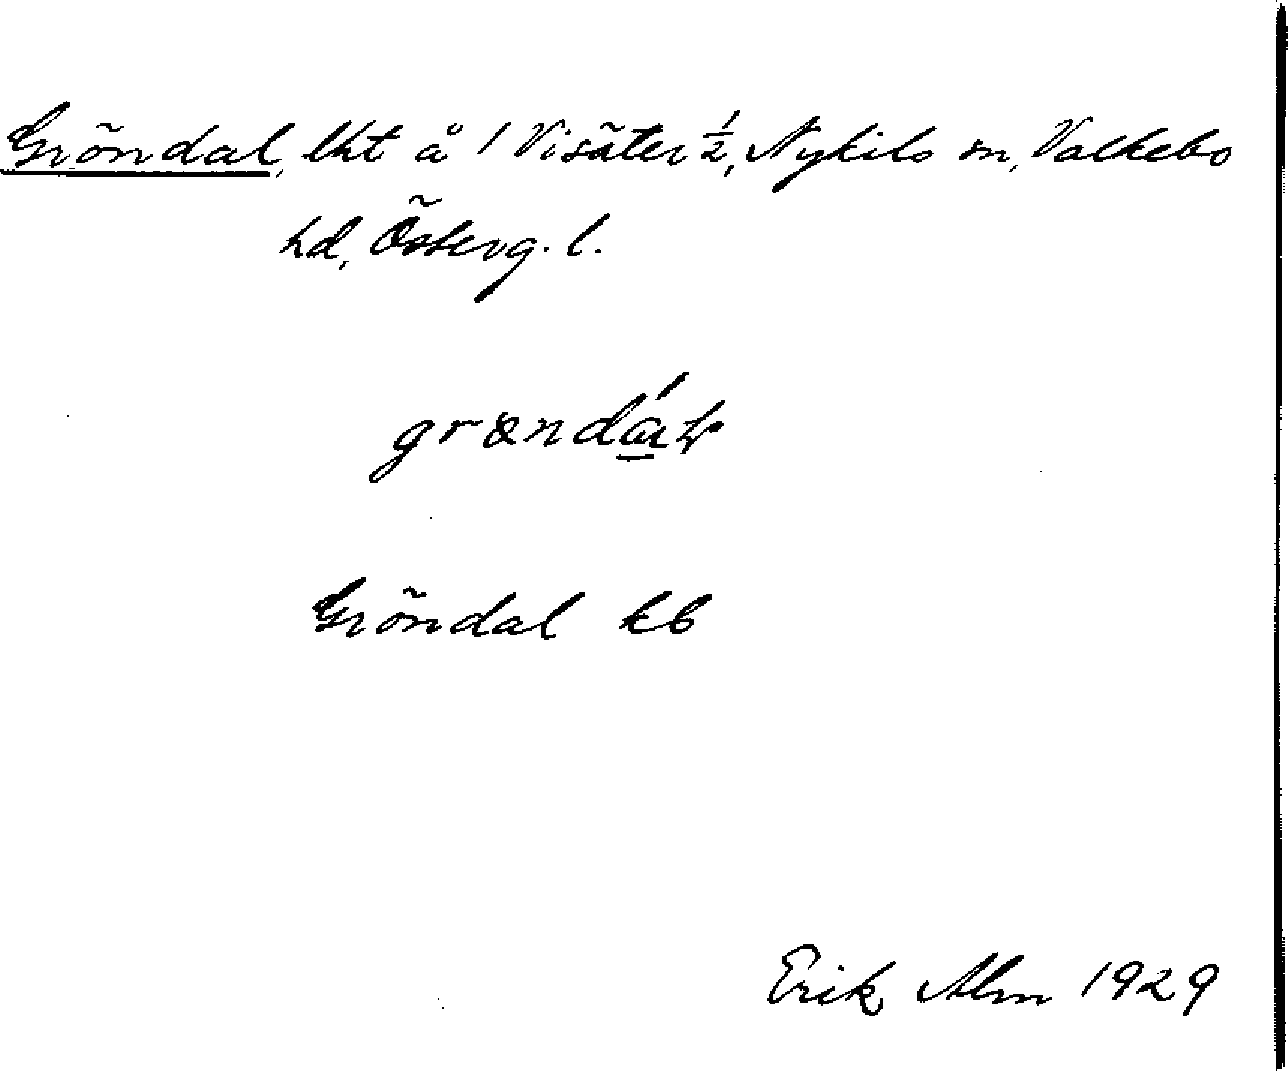 Gröndal, lht å 1 Visäter ½, Nykils sn, Valkebo
hd, Österg. l.
Gröndal kb
Erik Alm 1929